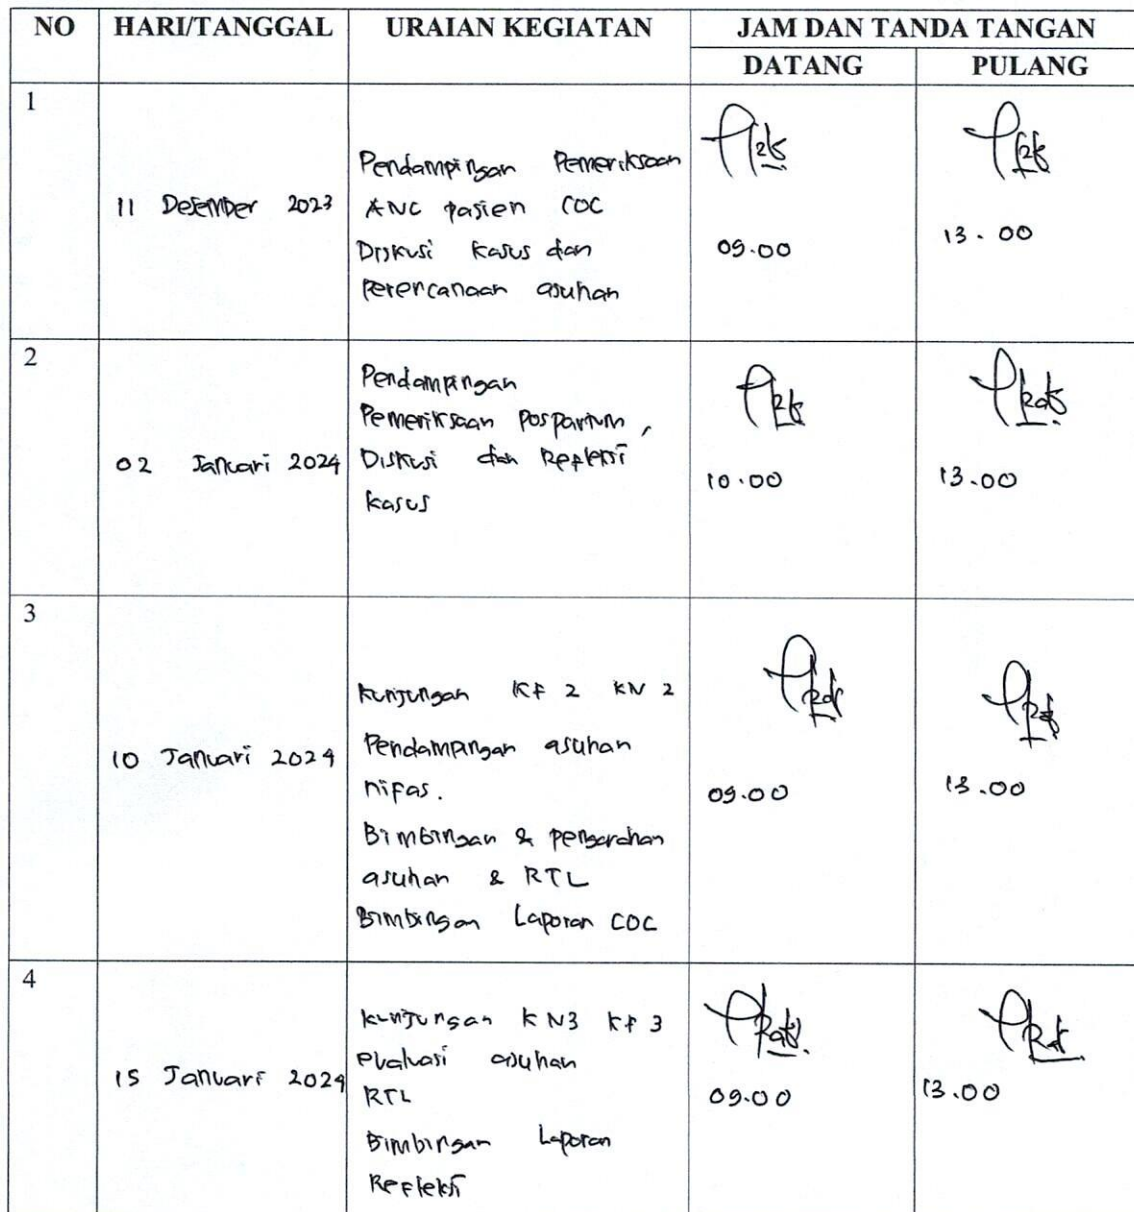 NO HARI/TANGGAL URAIAN KEGIATAN JAM DAN TANDA TANGAN
DATANG PULANG
1
11 Desember 2023
Pendampingan Pemeriksaan
ANC pasien COC
Diskusi kasus dan
perencanaan asuhan
09.00
13.00
2
02 Januari 2024
Pendampingan
Pemeriksaan Pospartum,
Diskusi dan Refleksi
kasus
10.00
13.00
3
10 Januari 2024
Kunjungan KF 2 KN 2
Pendampingan asuhan
nifas.
Bimbingan & pengarahan
asuhan & RTL
Bimbingan Laporan COC
09.00
13.00
4
15 Januari 2024
Kunjungan KN3 KF 3
evaluasi asuhan
RTL
Bimbingan Laporan
Refleksi
09.00
13.00